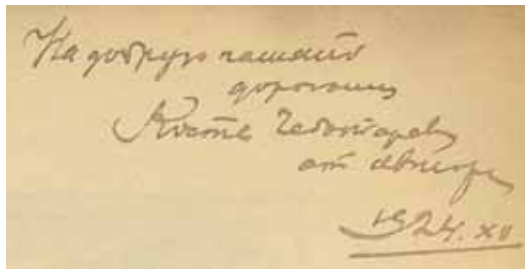 На добрую память
дорогому
Косте Чеботареву
от автора
1924. XII